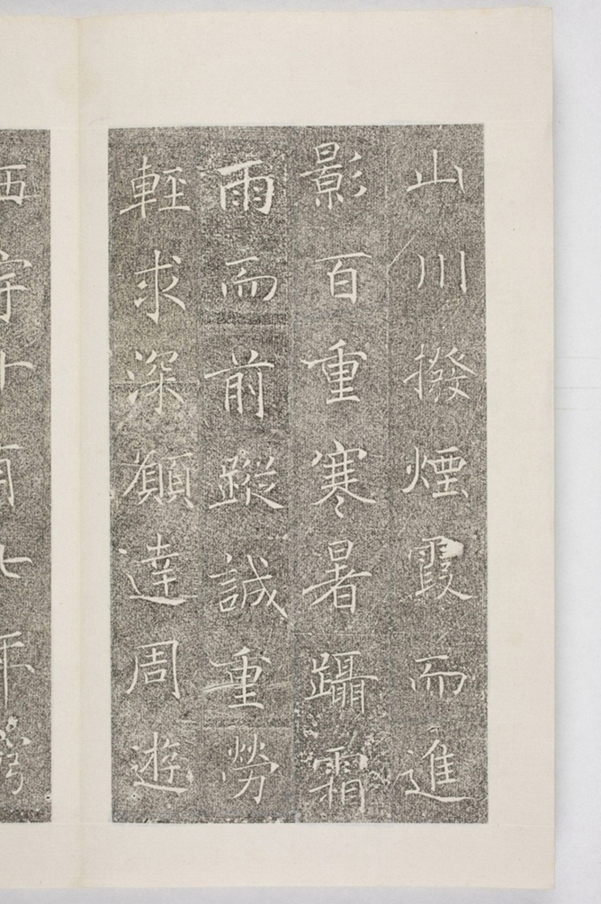 山川撥煙霞而進
影百重寒暑躡霜
雨而前蹤誠重勞
輕求深願達周遊
西宇十有七年窮